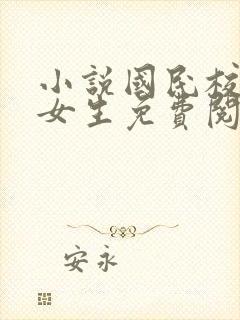 小説國民校
女生免費閱
安永